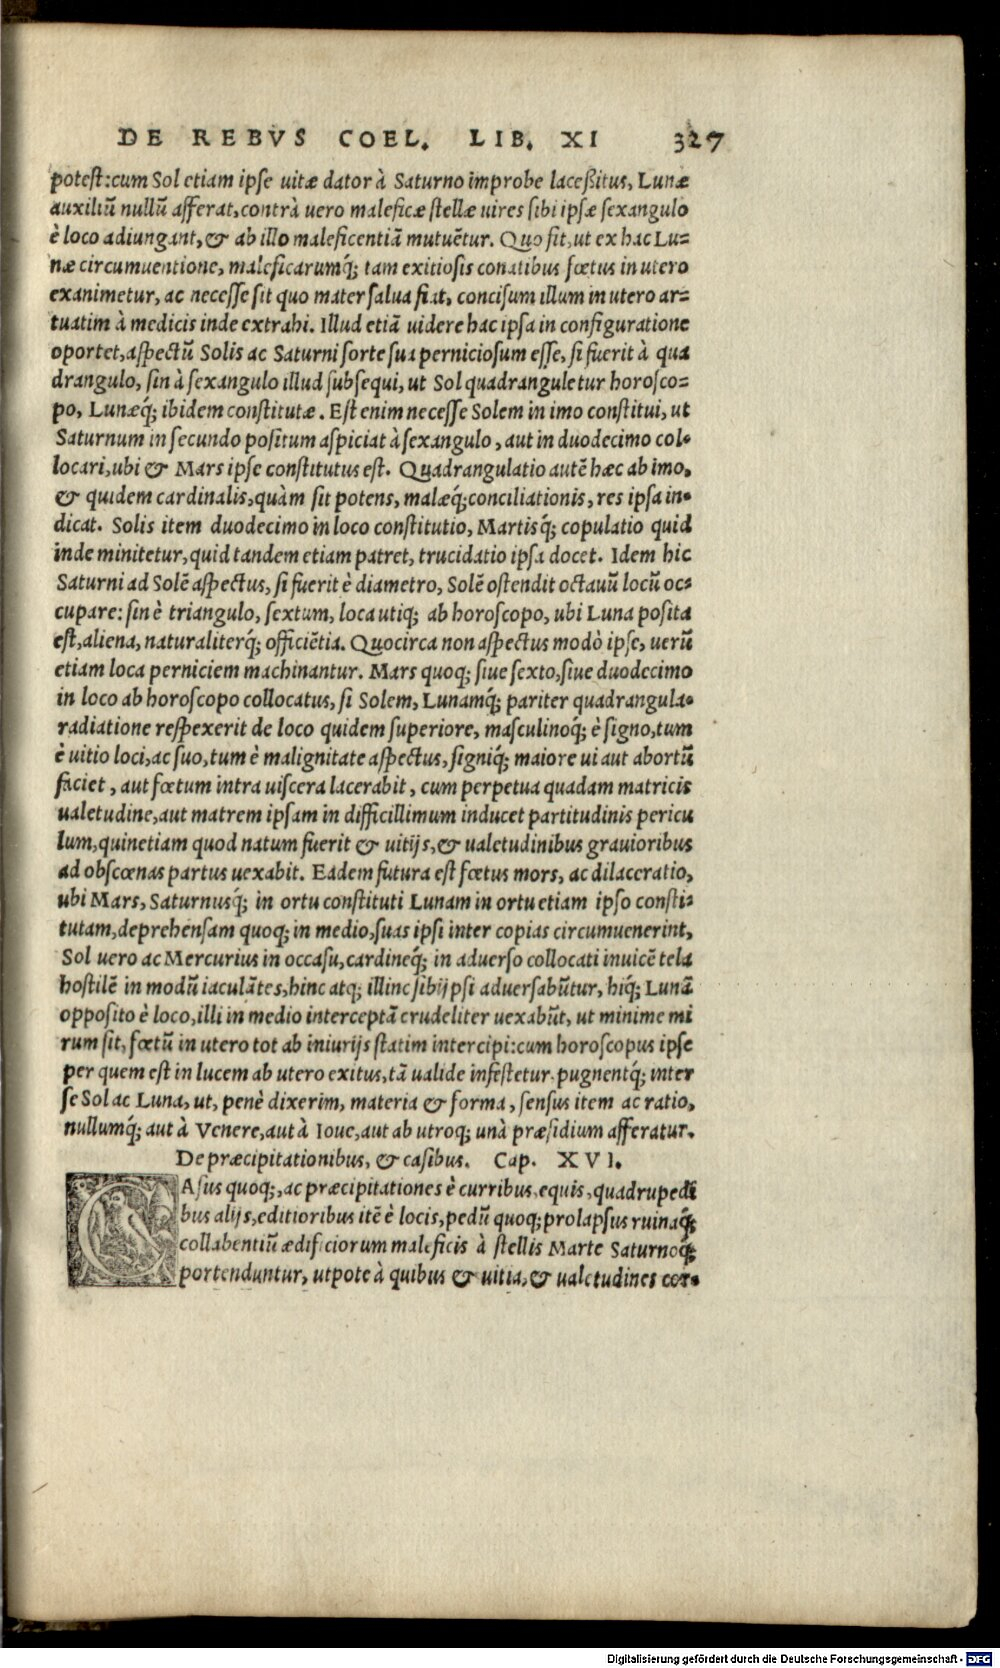 DE REBVS COEL. LIB. XI 327
potest: cum Sol etiam ipse uitæ dator à Saturno improbe laceßitus, Lunæ
auxiliū nullū afferat, contrà uero maleficæ stellæ uires sibi ipsæ sexangulo
è loco adiungant, & ab illo maleficentiā mutuētur. Quo fit, ut ex hac Lu=
næ circumuentione, maleficarumq́; tam exitiosis conatibus fœtus in utero
exanimetur, ac necesse sit quo mater salua fiat, concisum illum in utero ar=
tuatim à medicis inde extrahi. Illud etiā uidere hac ipsa in configuratione
oportet, aspectū Solis ac Saturni sorte sua perniciosum esse, si fuerit à qua
drangulo, sin à sexangulo illud subsequi, ut Sol quadranguletur horosco=
po, Lunæq́; ibidem constitutæ. Est enim necesse Solem in imo constitui, ut
Saturnum in secundo positum aspiciat à sexangulo, aut in duodecimo col=
locari, ubi & Mars ipse constitutus est. Quadrangulatio autē hæc ab imo,
& quidem cardinalis, quàm sit potens, malæq́; conciliationis, res ipsa in=
dicat. Solis item duodecimo in loco constitutio, Martisq́; copulatio quid
inde minitetur, quid tandem etiam patret, trucidatio ipsa docet. Idem hic
Saturni ad Solē aspectus, si fuerit è diametro, Solē ostendit octauū locū oc=
cupare: sin è triangulo, sextum, loca utiq; ab horoscopo, ubi Luna posita
est, aliena, naturaliterq́; officiētia. Quocirca non aspectus modò ipse, uerū
etiam loca perniciem machinantur. Mars quoq; siue sexto, siue duodecimo
in loco ab horoscopo collocatus, si Solem, Lunamq́; pariter quadrangula=
radiatione respexerit de loco quidem superiore, masculinoq́; è signo, tum
è uitio loci, ac suo, tum è malignitate aspectus, signiq́; maiore ui aut abortū
faciet, aut fœtum intra uiscera lacerabit, cum perpetua quadam matricis
ualetudine, aut matrem ipsam in difficillimum inducet partitudinis pericu
lum, quinetiam quod natum fuerit & uitijs, & ualetudinibus grauioribus
ad obscœnas partus uexabit. Eadem futura est fœtus mors, ac dilaceratio,
ubi Mars, Saturnusq́; in ortu constituti Lunam in ortu etiam ipso consti=
tutam, deprehensam quoq; in medio, suas ipsi inter copias circumuenerint,
Sol uero ac Mercurius in occasu, cardineq́; in aduerso collocati inuicē tela
hostilē in modū iaculātes, hinc atq; illinc sibijpsi aduersabūtur, hiq́; Lunā
opposito è loco, illi in medio interceptā crudeliter uexabūt, ut minime mi
rum sit, fœtū in utero tot ab iniurijs statim intercipi: cum horoscopus ipse
per quem est in lucem ab utero exitus, tā ualide infestetur, pugnentq́; inter
se Sol ac Luna, ut, penè dixerim, materia & forma, sensus item ac ratio,
nullumq́; aut à Venere, aut à Ioue, aut ab utroq; unà præsidium afferatur.
De præcipitationibus, & casibus. Cap. XVI.
CAsus quoq;, ac præcipitationes è curribus, equis, quadrupedi
bus alijs, editioribus itē è locis, pedū quoq; prolapsus ruinaq́;
collabentiū ædificiorum maleficis à stellis Marte Saturnoq́;
portenduntur, utpote à quibus & uitia, & ualetudines cor=
Digitalisierung gefördert durch die Deutsche Forschungsgemeinschaft - DFG